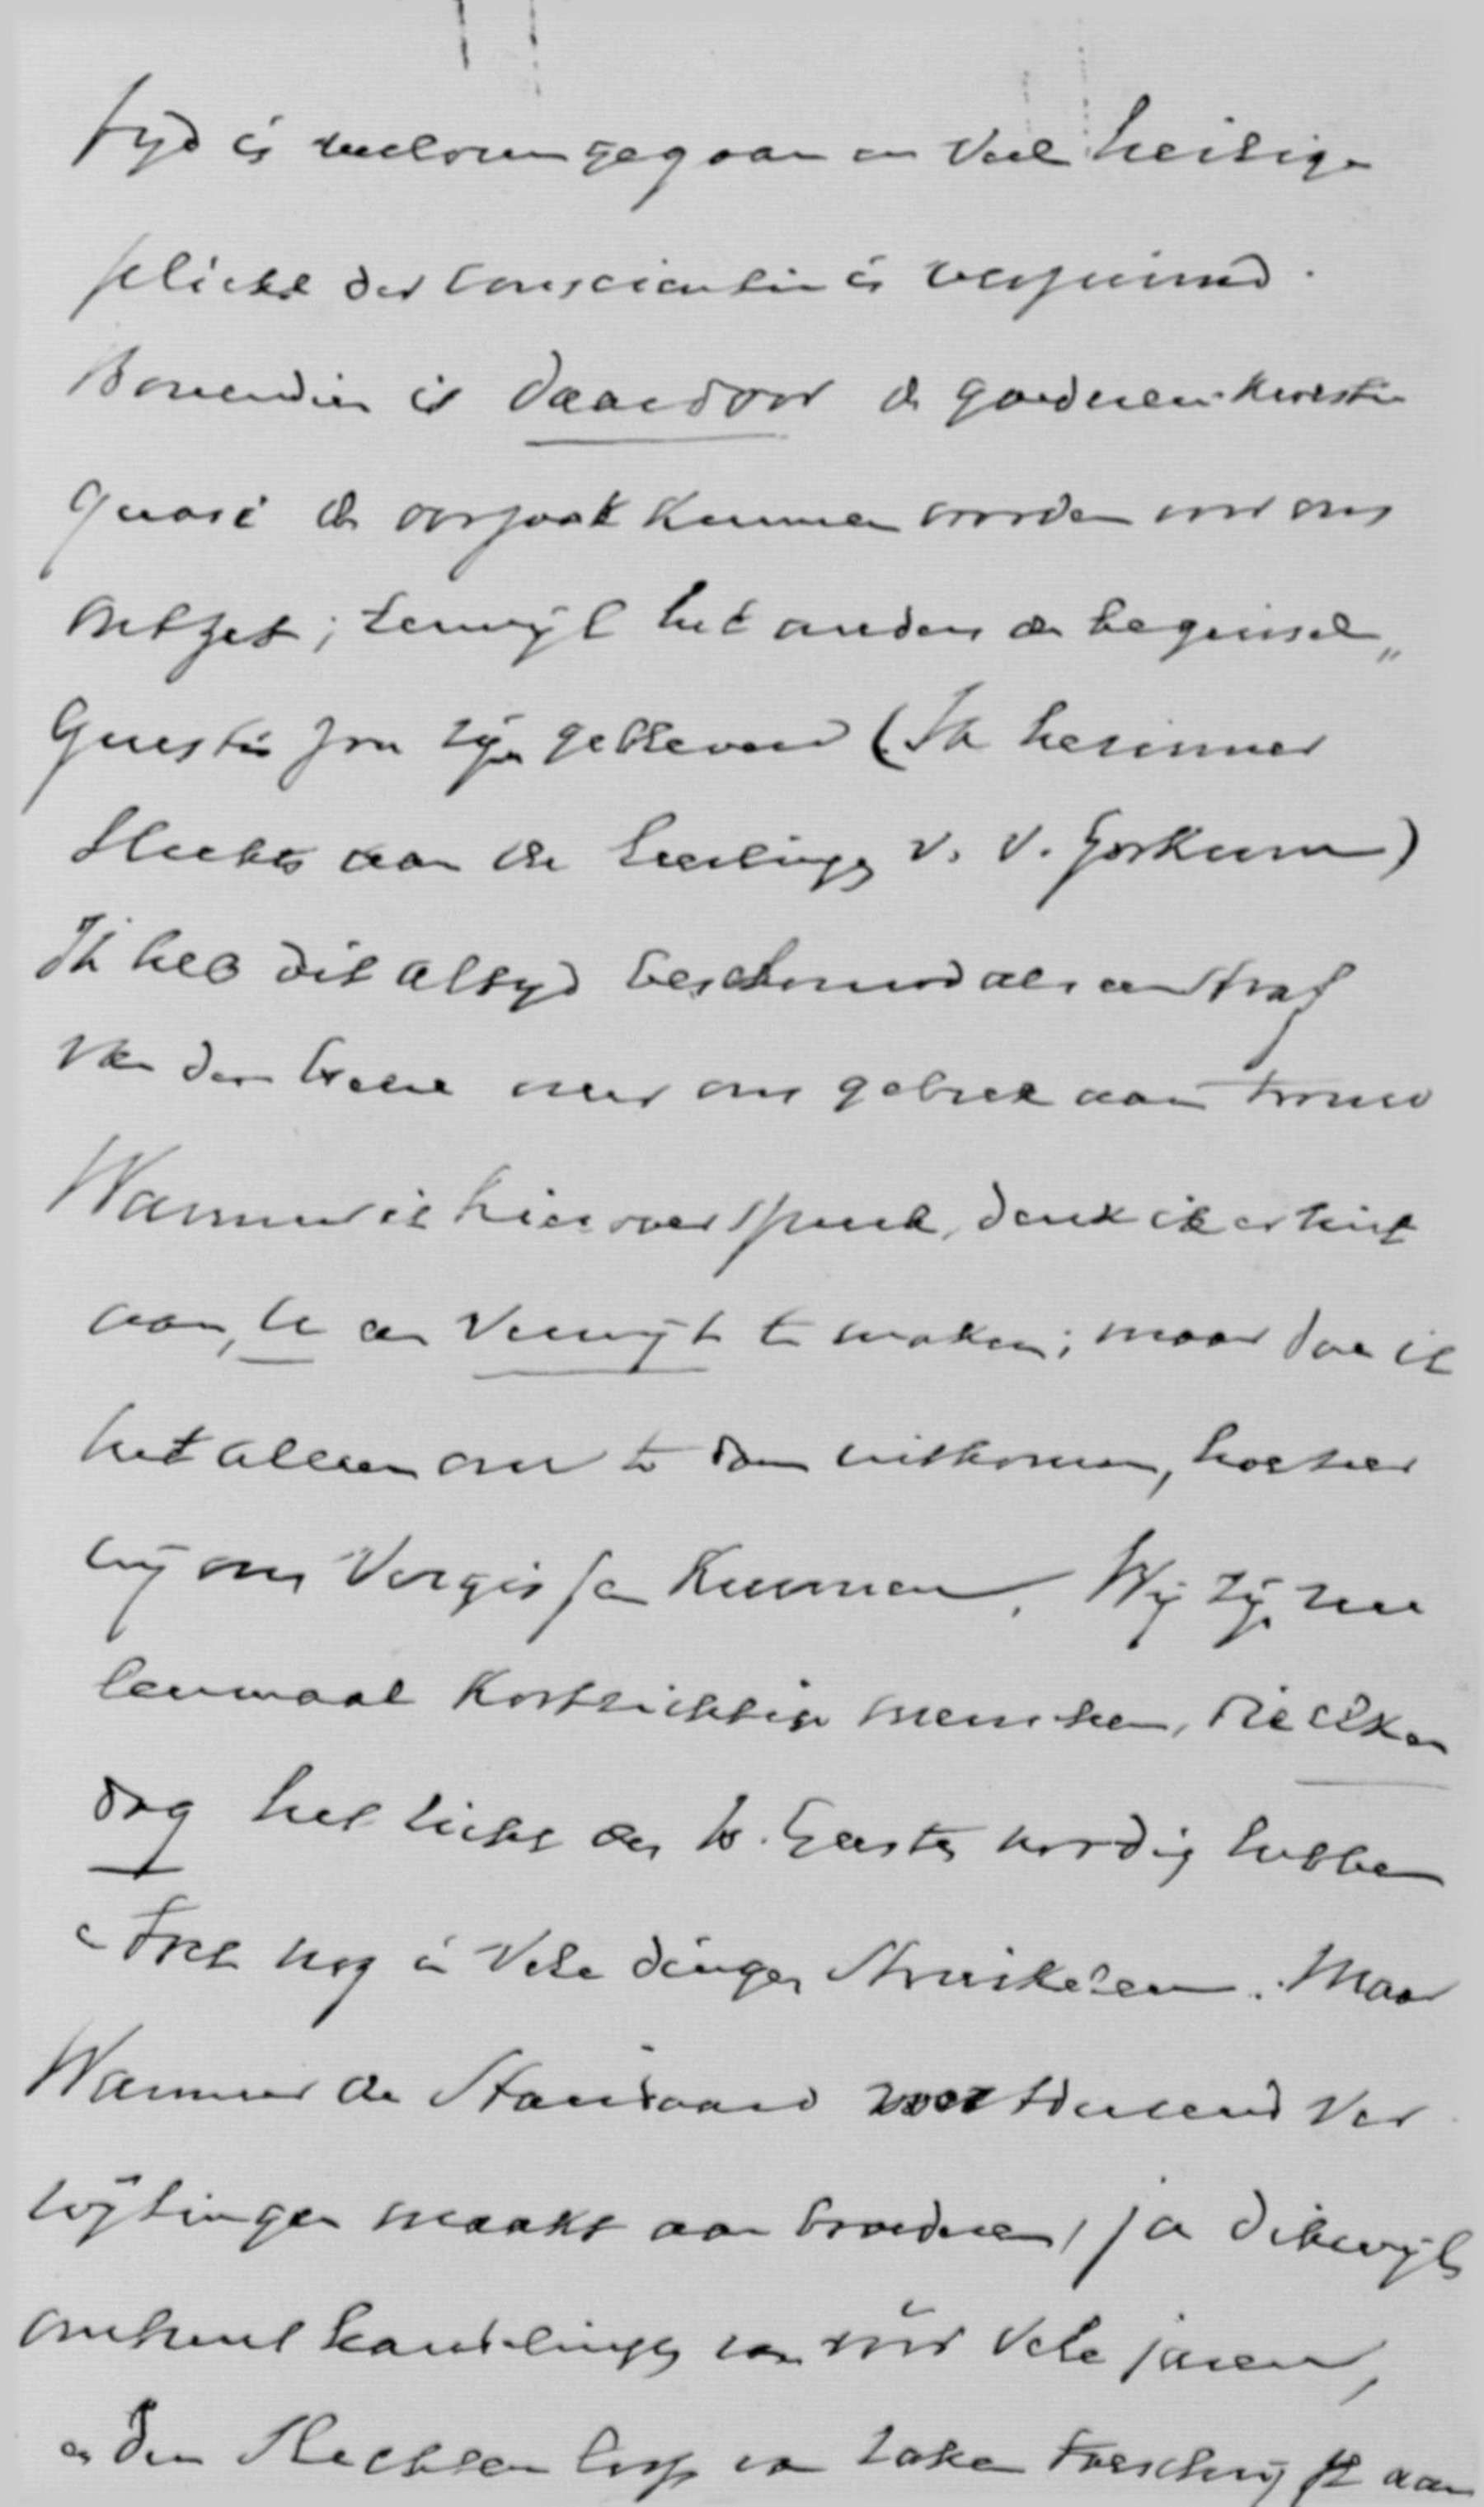 tyd is verloren gegaan en veel heilige
plicht der conscientie is verzuimd.
Bovendien is daardoor de goederen-kwestie
quasi de oorzaak kunnen worden voor ons
ontzet; terwijl het anders de beginsel„
questie zou zijn gebleven (Ik herinner
slechts aan de leerlingen v. V. Gorkum)
Ik heb dit altyd beschouwd als een straf
van den Heere over ons gebrek aan trouw
Wanneer ik hierover spreek, denk ik er niet
aan, U een verwijt te maken; maar doe ik
het alleen om te doen uitkomen, hoezeer
wij ons vergissen kunnen. Wij zijn nu
eenmaal kortzichtige menschen, die elken
dag het licht des H. Geestes noodig hebben
en toch nog in vele dingen struikelen. Maar
Wanneer de Standaard voortdurend ver
wijtingen maakt aan broederen, ja dikwijls
omtrent handelingen van vóór vele jaren,
en den slechten loop van zaken toeschrijft aan